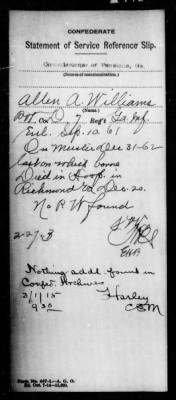 CONFEDERATE
Statement of Service Reference Slip.
Commissioner of Pensions, Ga.
(Source of communication.)
Allen A. Williams
Pvt. Co. D, 7 Reg't Ga. Inf.
Enl. Sep. 10. 61
On Muster Dec 31-62
last on which borne
Died in Hosp. in
Richmond Va Dec. 20.
No P W found
2-27-3
Nothing addl. found in
Confed. Archives
3/1/15 Harley
9 30
Form No. 407-1—A. G. O.
Ed. Oct. 7-14—25,000.